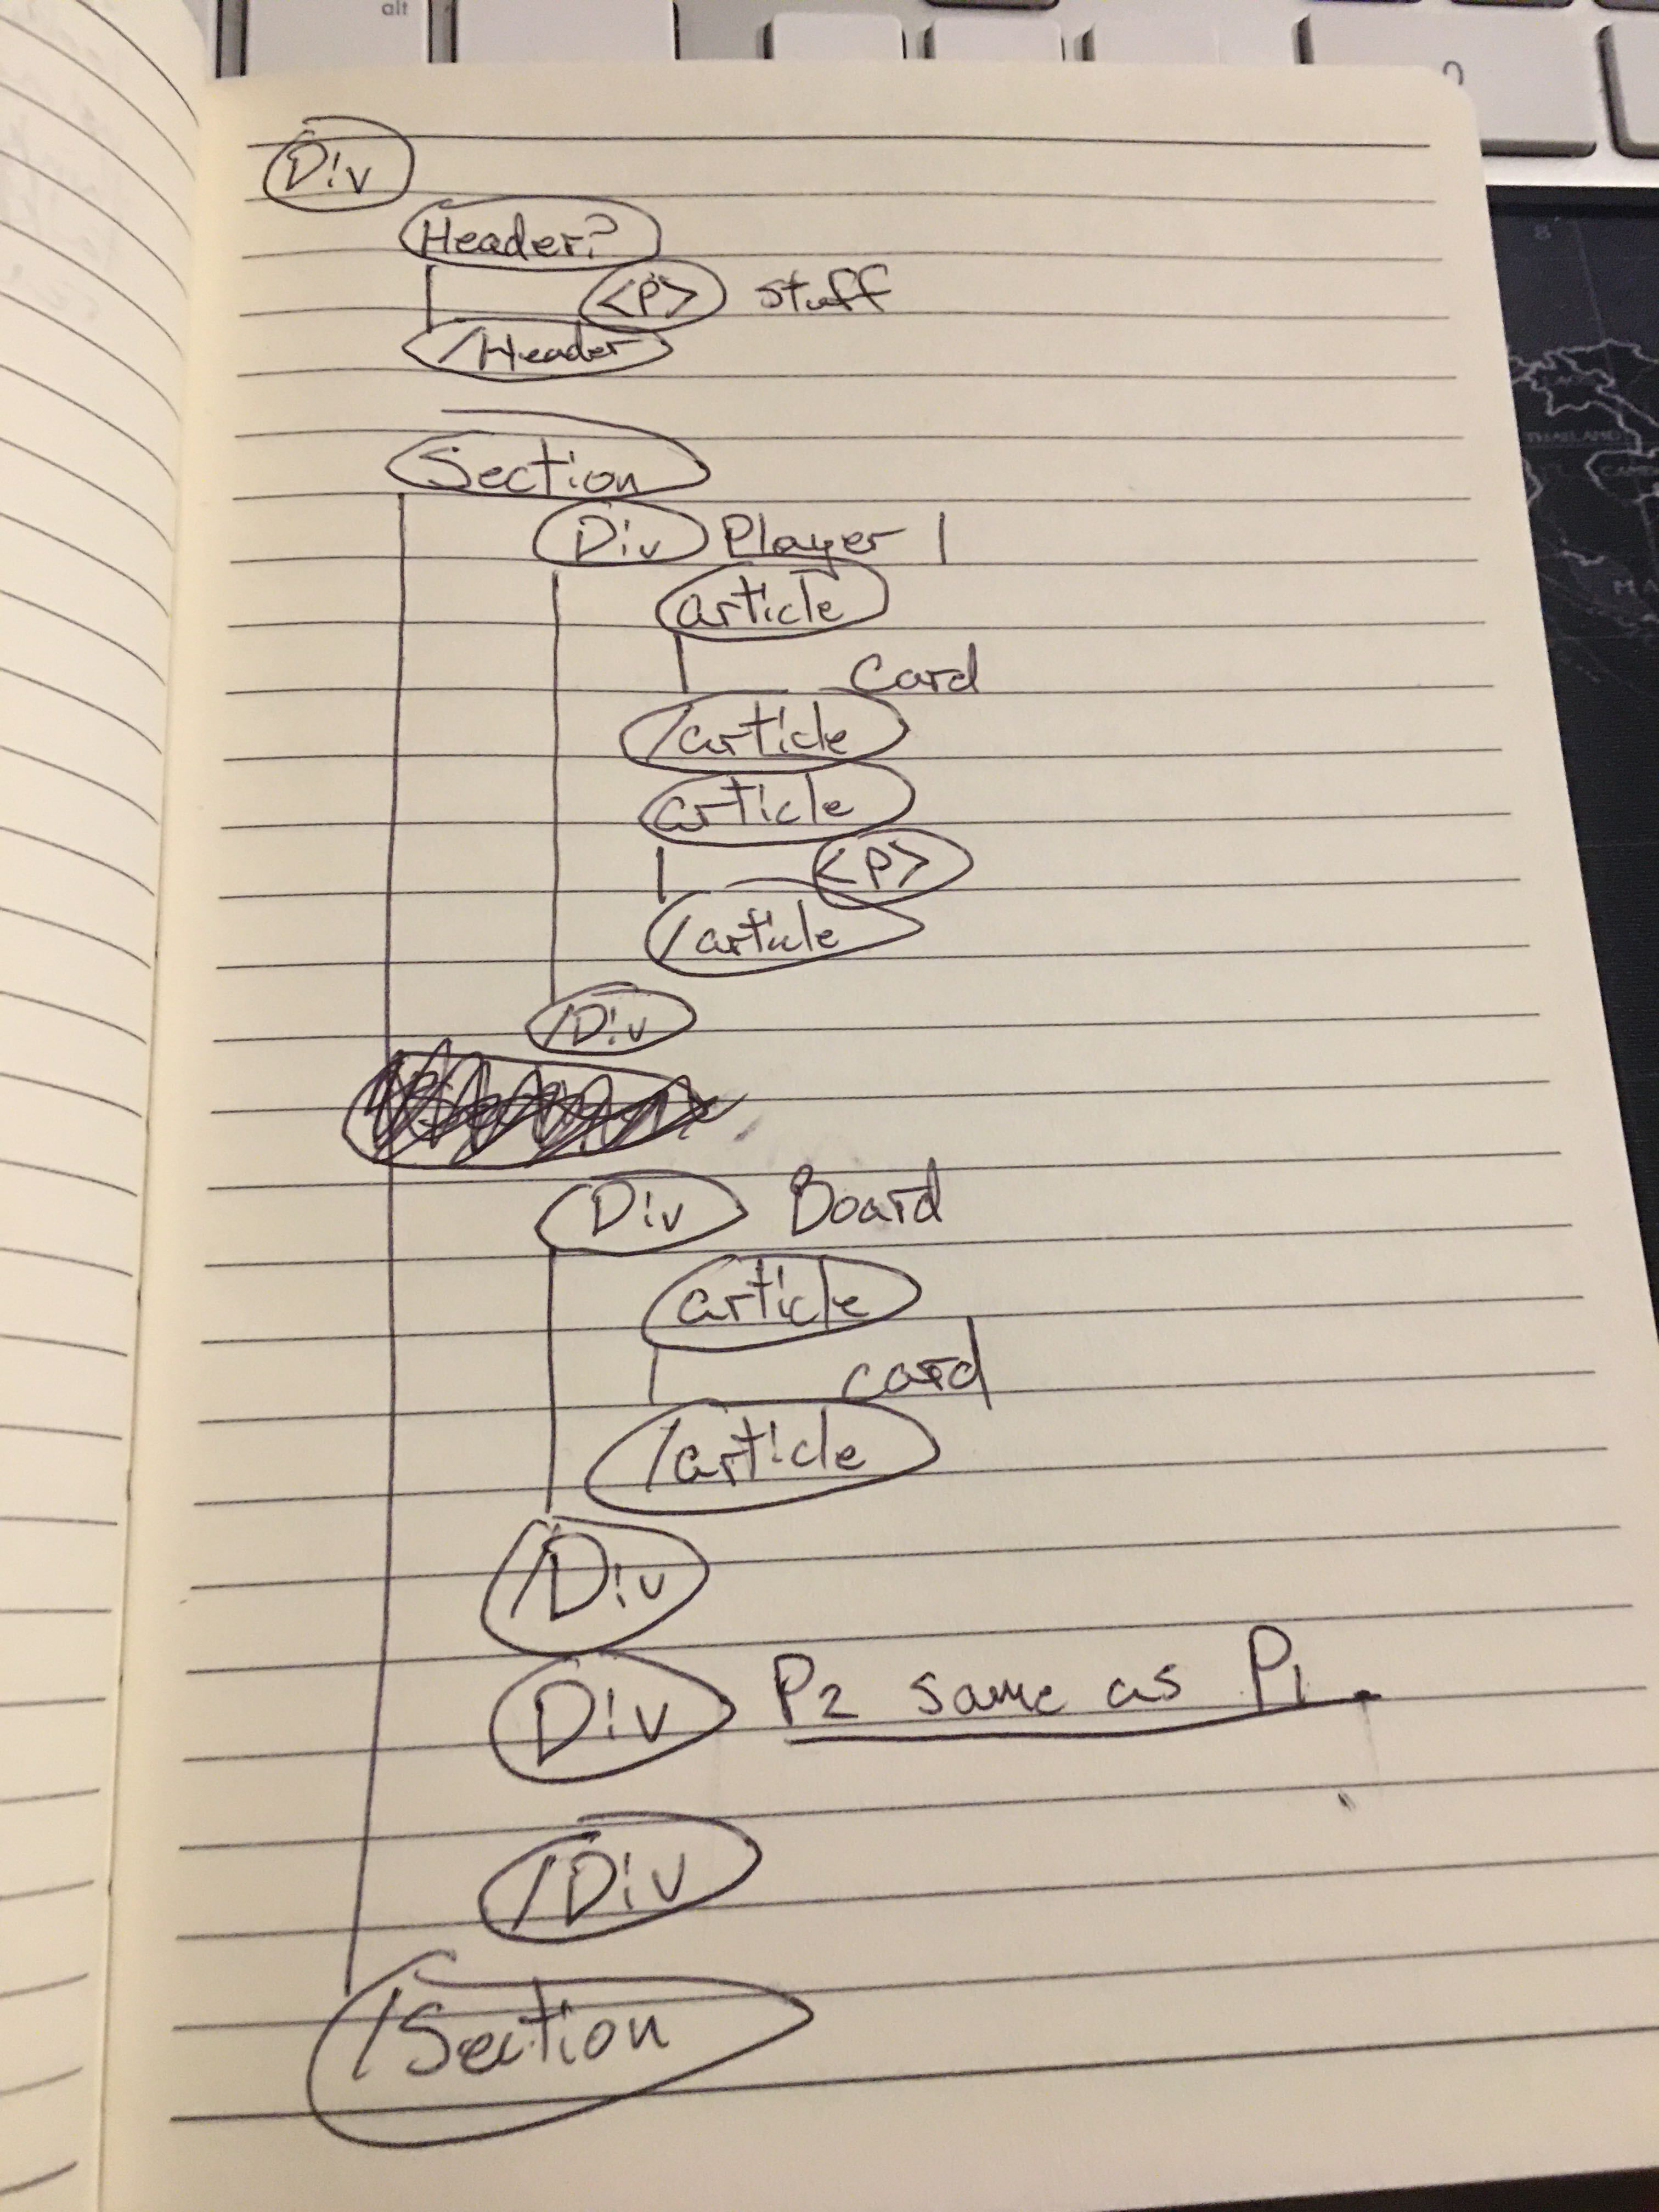 alt
Div
Header?
<P> stuff
/Header
Section
Div Player 1
article
Card
/article
article
<P>
/article
/Div
Div Board
article
card
/article
/Div
Div P2 same as P1.
/Div
/Section
8
THAILAND